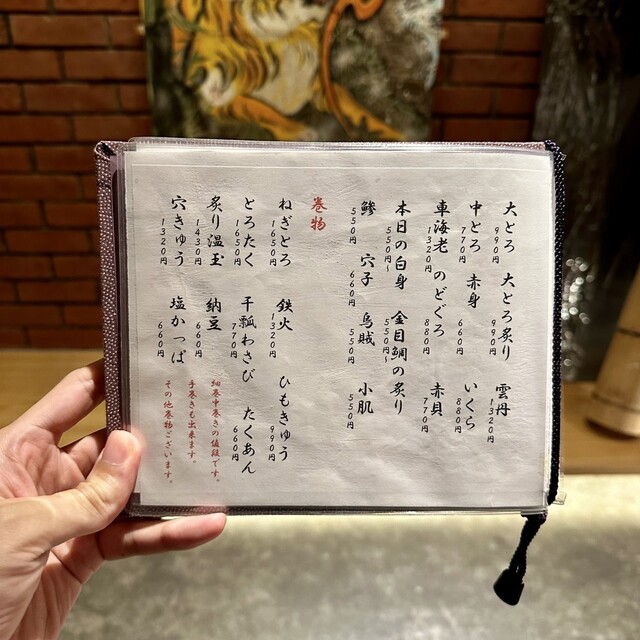 大とろ 990円 大とろ炙り 990円 雲丹 1320円
中とろ 770円 赤身 660円 いくら 880円
車海老 1320円 のどぐろ 880円 赤貝 770円
本日の白身 550円~ 金目鯛の炙り 550円~
鯵 550円 穴子 660円 烏賊 550円 小肌 550円
巻物
ねぎとろ 1650円 鉄火 1320円 ひもきゅう 990円
とろたく 1650円 干瓢わさび 770円 たくあん 660円
炙り温玉 1430円 納豆 660円
穴きゅう 1320円 塩かっぱ 660円
細巻中巻きの値段です。
手巻きも出来ます。
その他巻物ございます。